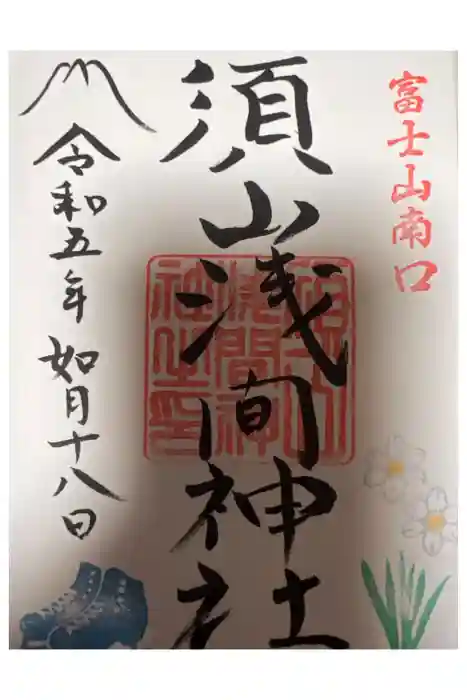 富士山南口
須山浅間神社
令和五年如月十八日